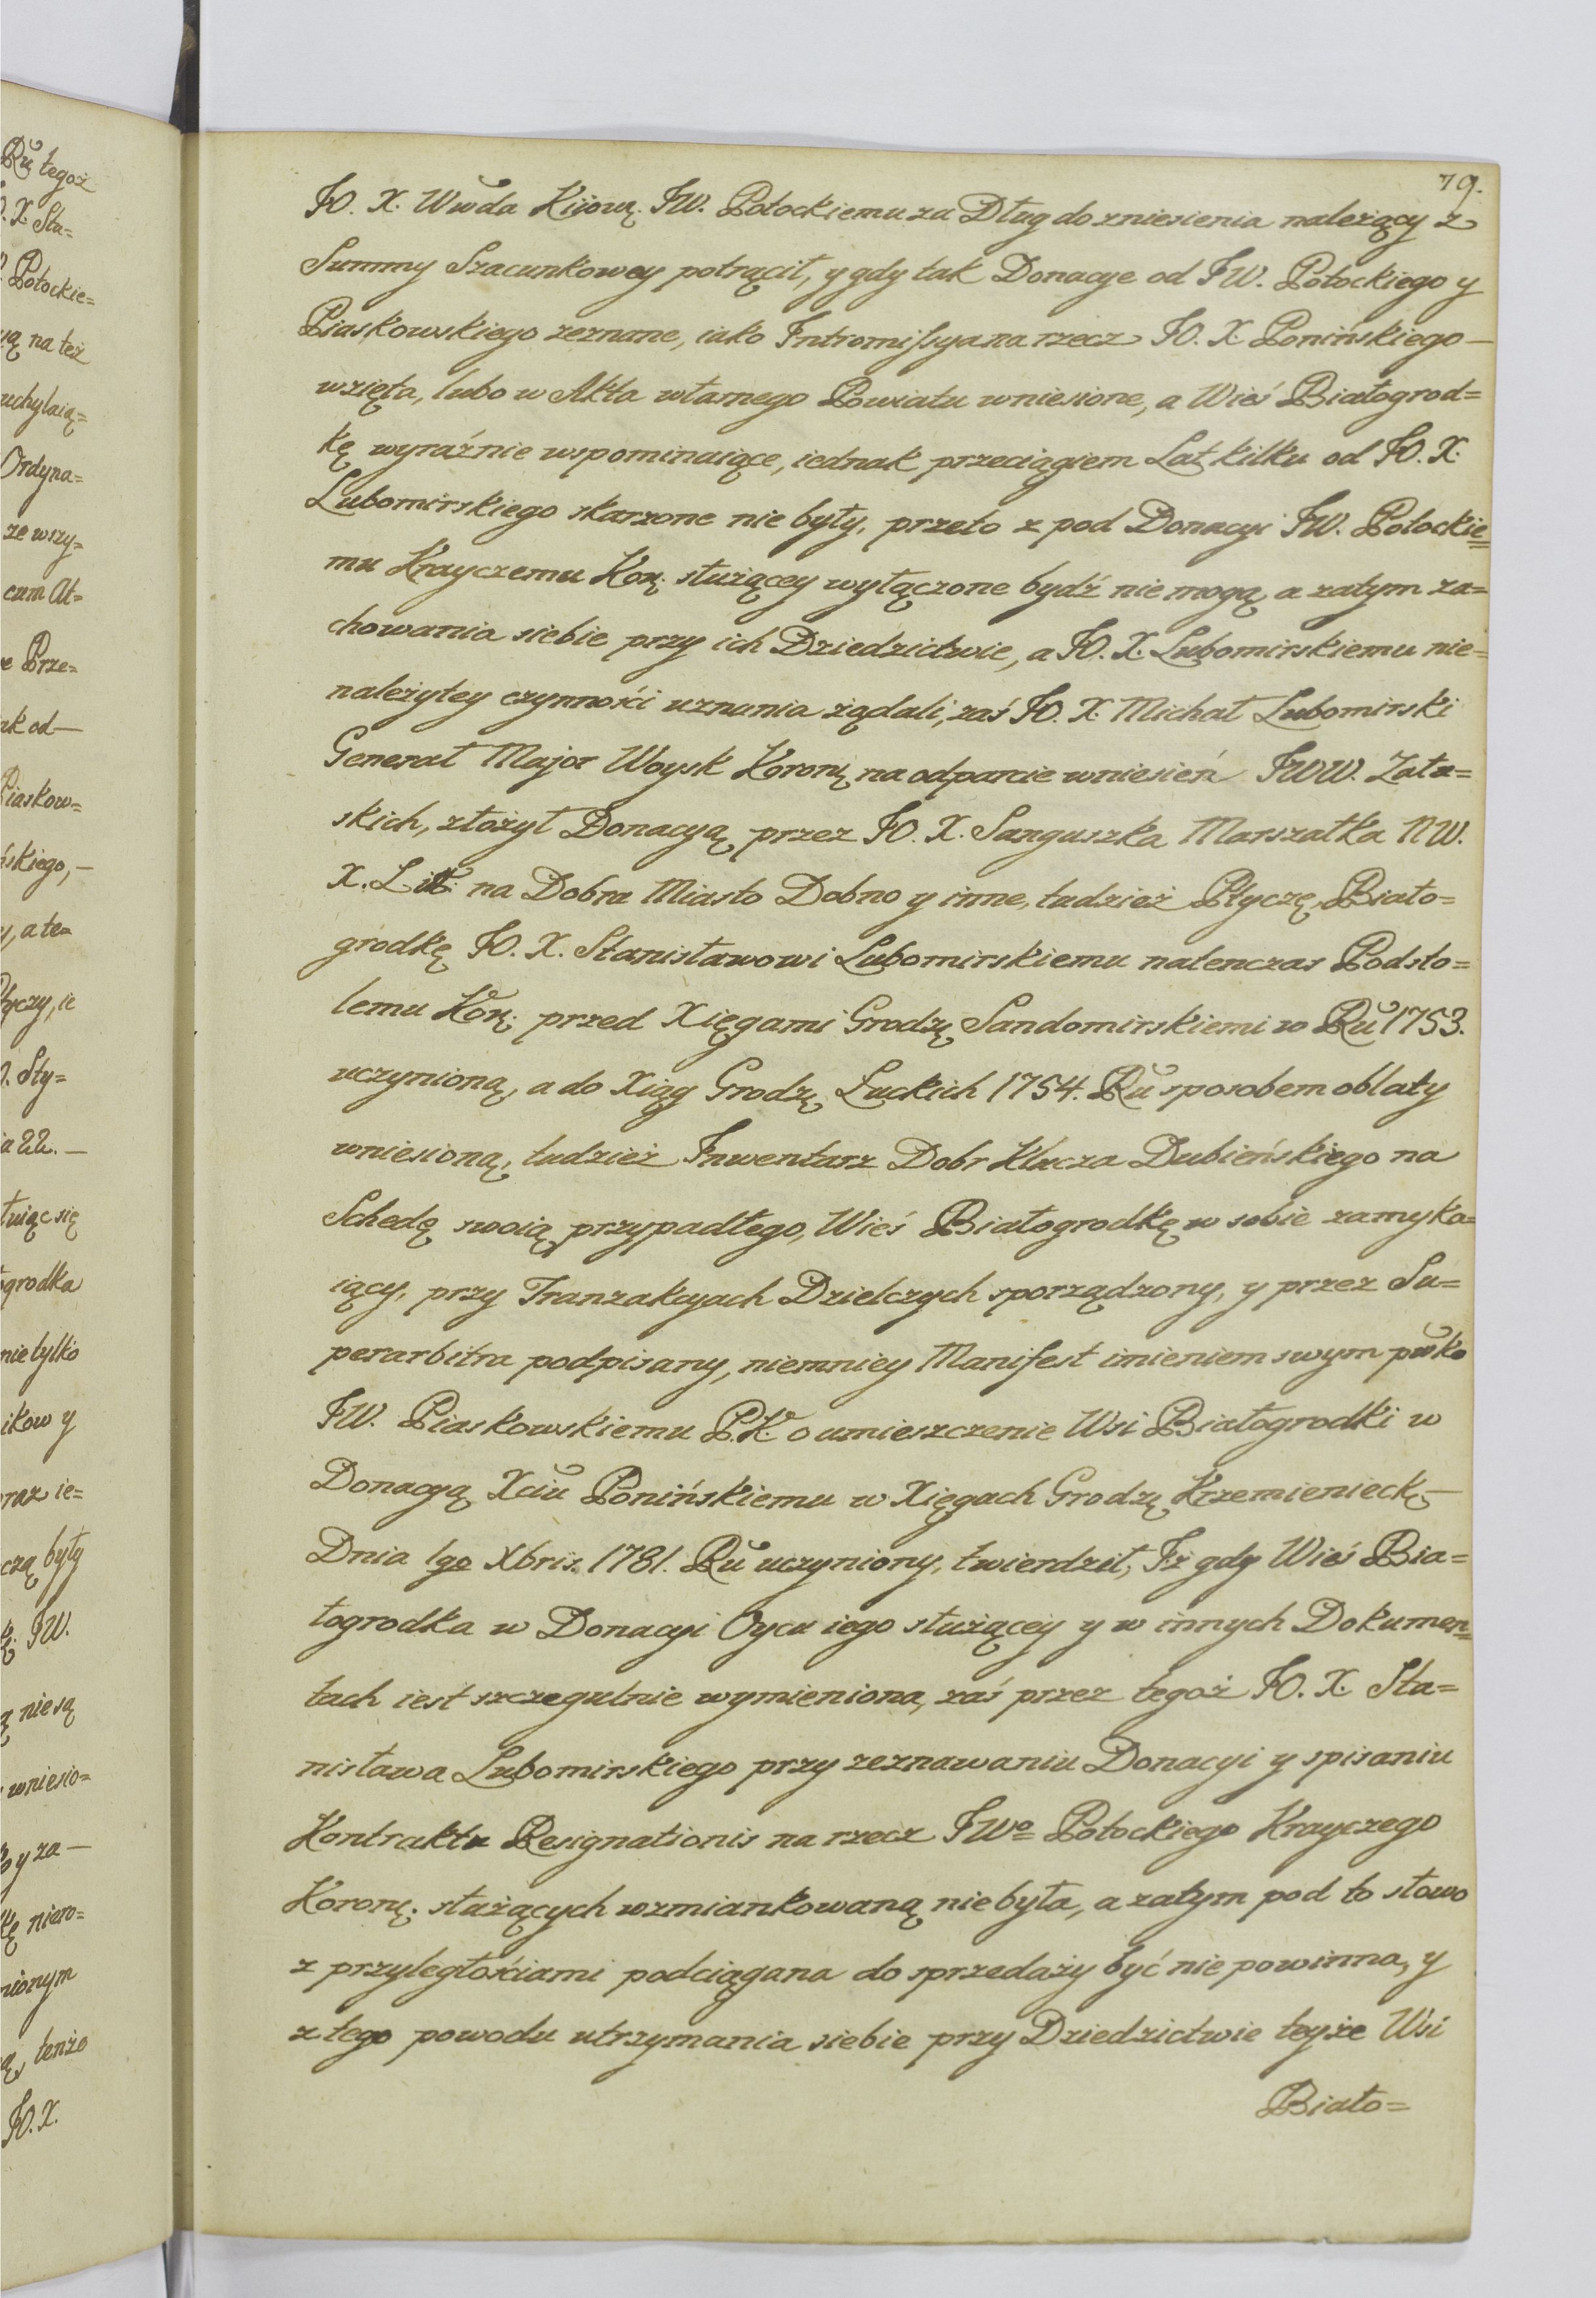 79.
JO. X. Wwda Kijow. JW. Potockiemu za Dług do zniesienia należący z
Summy Szacunkowey potrącił, y gdy tak Donacye od JW. Potockiego y
Piaskowskiego zeznane, iako Intromissya na rzecz JO. X. Ponińskiego —
wzięta, lubo w Akta własnego Powiatu wniesione, a Wieś Białogrod=
kę wyraźnie wspominaiące, iednak przeciągiem Lat kilku od JO. X.
Lubomirskiego skarzone nie były, przeto z pod Donacyi JW. Potockie=
mu Krayczemu Kor. służącey wyłączone bydź nie mogą, a zatym za=
chowania siebie przy ich Dziedzictwie, a JO. X. Lubomirskiemu nie=
należytey czynności uznania żądali, zaś JO. X. Michał Lubomirski
Generał Major Woysk Koron. na odparcie wniesień JWW. Zału=
skich, złożył Donacyą, przez JO. X. Sanguszka Marszałka NW.
X. Lit. na Dobra Miasto Dobno y inne, tudzież Płyczę, Biało=
grodkę JO. X. Stanisławowi Lubomirskiemu natenczas Podsto=
lemu Kor. przed Xięgami Grodz. Sandomirskiemi w Ru 1753.
uczynioną, a do Xiąg Grodz. Łuckich 1754. Ru sposobem oblaty
wniesioną, tudzież Inwentarz Dobr Klucza Dubieńskiego na
Schedę swoią przypadłego, Wieś Białogrodkę w sobie zamyka=
iący, przy Tranzakcyach Dzielczych sporządzony, y przez Su=
perarbitra podpisany, niemniey Manifest imieniem swym pwko
JW. Piaskowskiemu P.K. o umieszczenie Wsi Białogrodki w
Donacyą Xciu Ponińskiemu w Xięgach Grodz. Krzemienieck. —
Dnia 1go Xbris. 1781. Ru uczyniony, twierdził, Iż gdy Wieś Bia=
łogrodka w Donacyi Oycu iego służącey y w innych Dokumen=
tach iest szczegulnie wymieniona, zaś przez tegoż JO. X. Sta=
nisława Lubomirskiego przy zeznawaniu Donacyi y spisaniu
Kontraktu Resignationis na rzecz JWo Potockiego Krayczego
Koron. służących wzmiankowaną nie była, a zatym pod to słowo
z przyległościami podciągana do sprzedaży być nie powinna, y
z tego powodu utrzymania siebie przy Dziedzictwie teyże Wsi
Biało=